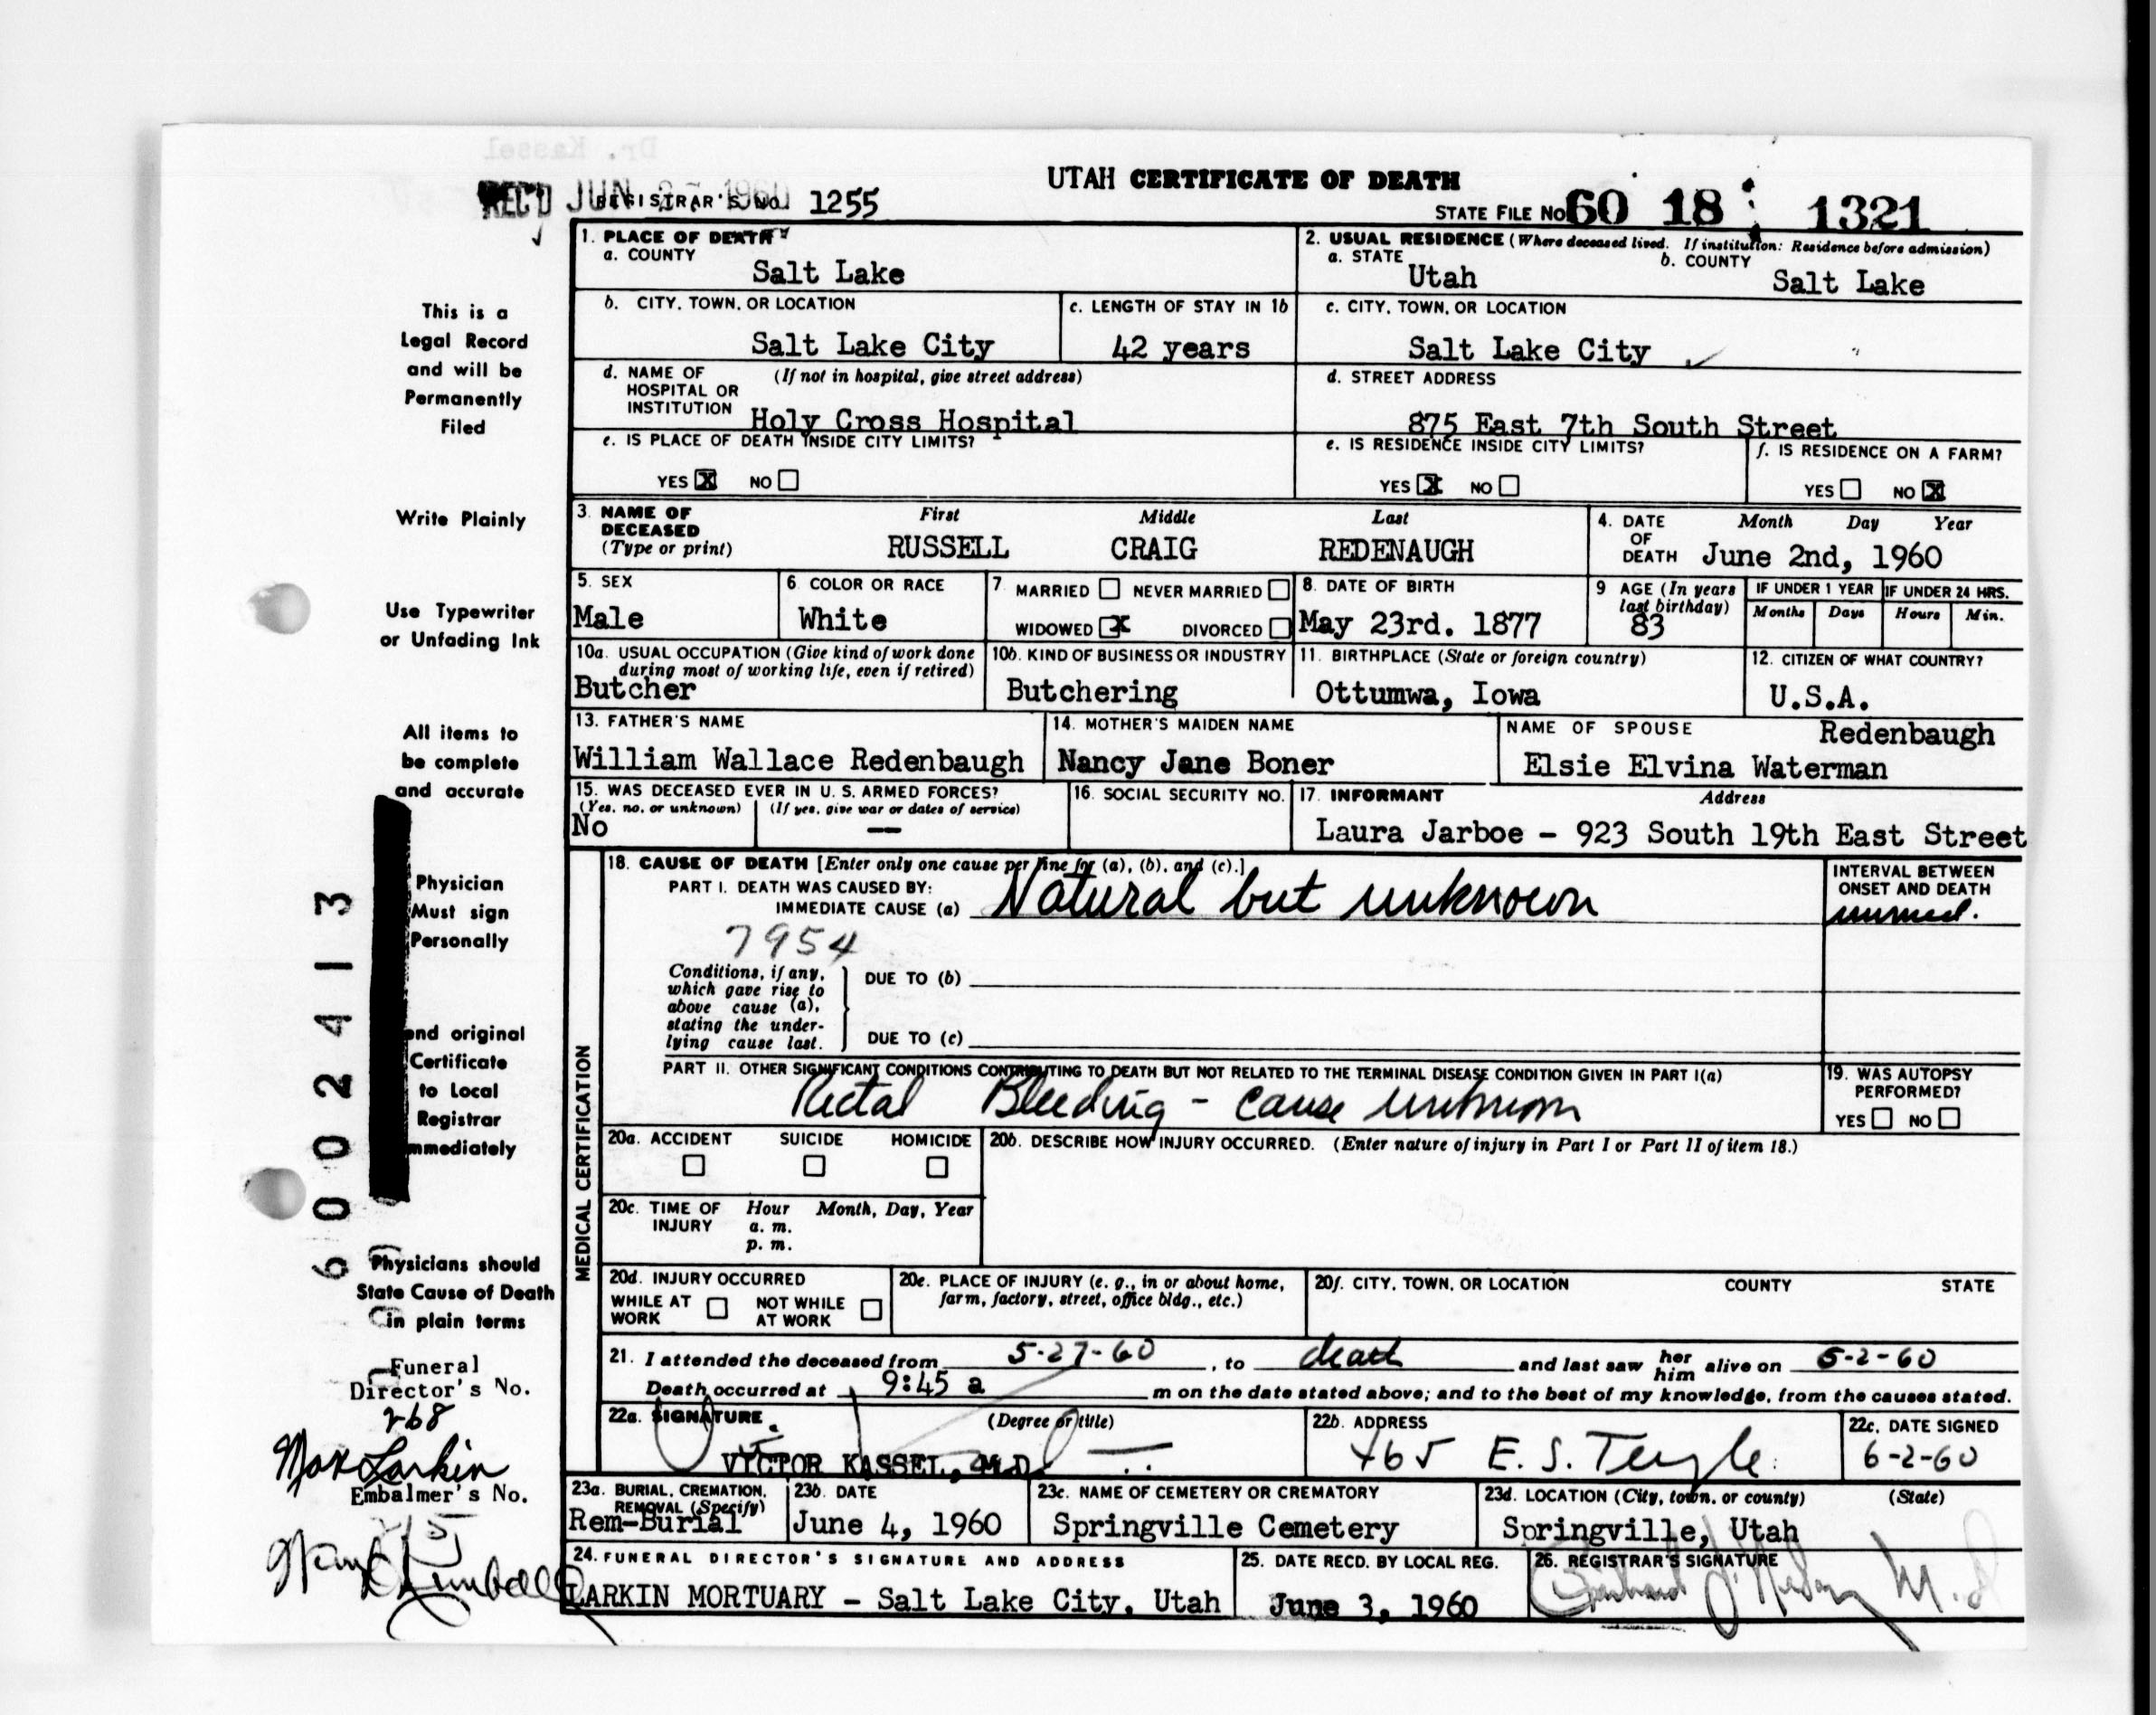 UTAH CERTIFICATE OF DEATH
REC'D JUN 1960 REGISTRAR'S NO. 1255
STATE FILE NO. 60 18 1321
1. PLACE OF DEATH
a. COUNTY
Salt Lake
2. USUAL RESIDENCE (Where deceased lived. If institution: Residence before admission)
a. STATE
Utah
b. COUNTY
Salt Lake
b. CITY, TOWN, OR LOCATION
Salt Lake City
c. LENGTH OF STAY IN 1b
42 years
c. CITY, TOWN, OR LOCATION
Salt Lake City
d. NAME OF (If not in hospital, give street address)
HOSPITAL OR
INSTITUTION Holy Cross Hospital
d. STREET ADDRESS
875 East 7th South Street
e. IS PLACE OF DEATH INSIDE CITY LIMITS?
YES X NO
e. IS RESIDENCE INSIDE CITY LIMITS?
YES X NO
f. IS RESIDENCE ON A FARM?
YES NO X
3. NAME OF First Middle Last
DECEASED
(Type or print) RUSSELL CRAIG REDENAUGH
4. DATE Month Day Year
OF
DEATH June 2nd, 1960
5. SEX
Male
6. COLOR OR RACE
White
7 MARRIED NEVER MARRIED
WIDOWED X DIVORCED
8. DATE OF BIRTH
May 23rd. 1877
9 AGE (In years
last birthday)
83
IF UNDER 1 YEAR
Months Days
IF UNDER 24 HRS.
Hours Min.
10a. USUAL OCCUPATION (Give kind of work done
during most of working life, even if retired)
Butcher
10b. KIND OF BUSINESS OR INDUSTRY
Butchering
11. BIRTHPLACE (State or foreign country)
Ottumwa, Iowa
12. CITIZEN OF WHAT COUNTRY?
U.S.A.
13. FATHER'S NAME
William Wallace Redenbaugh
14. MOTHER'S MAIDEN NAME
Nancy Jane Boner
NAME OF SPOUSE Redenbaugh
Elsie Elvina Waterman
15. WAS DECEASED EVER IN U. S. ARMED FORCES?
(Yes, no, or unknown) (If yes, give war or dates of service)
No —
16. SOCIAL SECURITY NO.
17. INFORMANT Address
Laura Jarboe - 923 South 19th East Street
MEDICAL CERTIFICATION
18. CAUSE OF DEATH [Enter only one cause per line for (a), (b), and (c).]
PART I. DEATH WAS CAUSED BY:
IMMEDIATE CAUSE (a) Natural but unknown
INTERVAL BETWEEN
ONSET AND DEATH
7954
Conditions, if any,
which gave rise to
above cause (a),
stating the under-
lying cause last.
DUE TO (b)
DUE TO (c)
PART II. OTHER SIGNIFICANT CONDITIONS CONTRIBUTING TO DEATH BUT NOT RELATED TO THE TERMINAL DISEASE CONDITION GIVEN IN PART I(a)
Rectal Bleeding - cause unknown
19. WAS AUTOPSY
PERFORMED?
YES NO
20a. ACCIDENT SUICIDE HOMICIDE
20b. DESCRIBE HOW INJURY OCCURRED. (Enter nature of injury in Part I or Part II of item 18.)
20c. TIME OF Hour Month, Day, Year
INJURY a. m.
p. m.
20d. INJURY OCCURRED
WHILE AT WORK NOT WHILE AT WORK
20e. PLACE OF INJURY (e. g., in or about home,
farm, factory, street, office bldg., etc.)
20f. CITY, TOWN, OR LOCATION COUNTY STATE
21. I attended the deceased from 5-27-60, to death and last saw her him alive on 6-2-60
Death occurred at 9:45 a m on the date stated above; and to the best of my knowledge, from the causes stated.
22a. SIGNATURE (Degree or title)
VICTOR KASSEL, M.D.
22b. ADDRESS
465 E. S. Temple
22c. DATE SIGNED
6-2-60
23a. BURIAL, CREMATION,
REMOVAL (Specify)
Rem-Burial
23b. DATE
June 4, 1960
23c. NAME OF CEMETERY OR CREMATORY
Springville Cemetery
23d. LOCATION (City, town, or county) (State)
Springville, Utah
24. FUNERAL DIRECTOR'S SIGNATURE AND ADDRESS
LARKIN MORTUARY - Salt Lake City, Utah
25. DATE RECD. BY LOCAL REG.
June 3, 1960
26. REGISTRAR'S SIGNATURE
M.D
This is a
Legal Record
and will be
Permanently
Filed
Write Plainly
Use Typewriter
or Unfading Ink
All items to
be complete
and accurate
Physician
Must sign
Personally
end original
Certificate
to Local
Registrar
mmediately
Physicians should
State Cause of Death
in plain terms
Funeral
Director's No.
268
Max Larkin
Embalmer's No.
6002413
Dr. Kassel